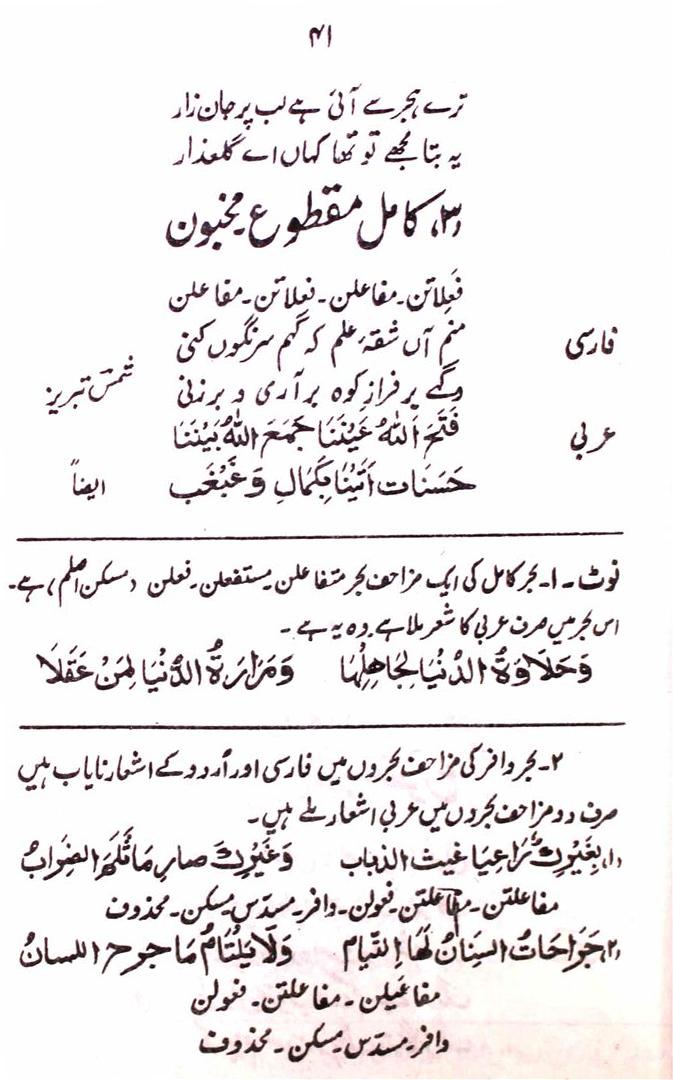 ۴۱
ترے ہجر سے آئی ہے لب پر جان زار
یہ بتا مجھے تو تھا کہاں اے گلعذار
(۳) کامل مقطوع مخبون
فَعِلاتن۔ مفاعلن۔ فعلاتن۔ مفاعلن
فارسی منم آں شقۂ علم کہ گہم سرنگوں کنی
وگہے بر فرازِ کوہ برآری و برزنی شمس تبریز
عربی فَتَحَ اللہُ عَیْنَنَا جَمَعَ اللہُ بَیْنَنَا
حَسَنَات اَتَیْنَا بِکَمَالِ وَغَبْغَبٖ ایضاً
نوٹ۔ ۱۔ بحر کامل کی ایک مزاحف بحر متفاعلن۔ مستفعلن۔ فعلن (مسکن اصلم) ہے۔
اس بحر میں صرف عربی کا شعر ملا ہے۔ وہ یہ ہے۔
وَحَلَاوَةُ الدُنْیَا لِجَاھِلِھَا وَمَرَارَةُ الدُّنْیَا لِمَنْ عَقَلَا
۲۔ بحر وافر کی مزاحف بحروں میں فارسی اور اُردو کے اشعار نایاب ہیں
صرف دو مزاحف بحروں میں عربی اشعار ملے ہیں۔
(۱) بِغَیْرِكَ رَاعِیَا عَبِثَ الذِباب وَغَیْرِكَ صارِمَا ثَلَمَ الضِرَابُ
مفاعلتن۔ مفاعلتن۔ فعولن۔ وافر۔ مسدّس۔ مسکن۔ محذوف
(۲) جَرَاحَاتُ السِنَانُ لَھَا اِلتیام وَلَا یَلْتَامُ مَا جرح اللسانُ
مفاعیلن۔ مفاعلتن۔ فعولن
وافر۔ مسدّس۔ مسکن۔ محذوف